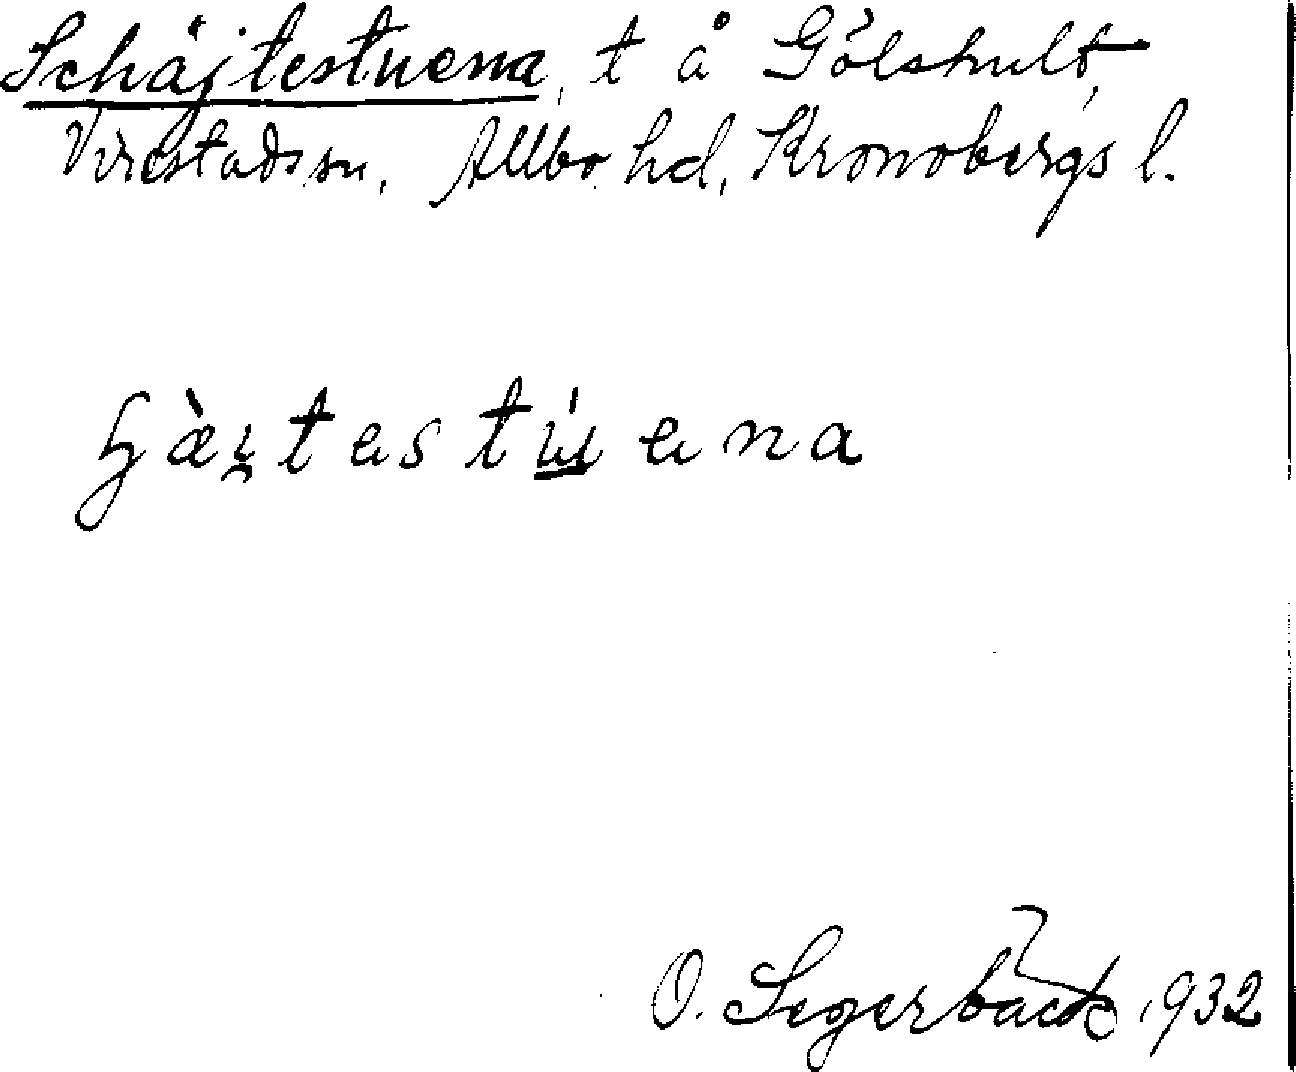 Schäjtestuena, t å Gölshult,
Virestads sn, Allbo hd, Kronobergs l.
ɧæ̀i̯testu̇ena
O. Segerbäck 1932